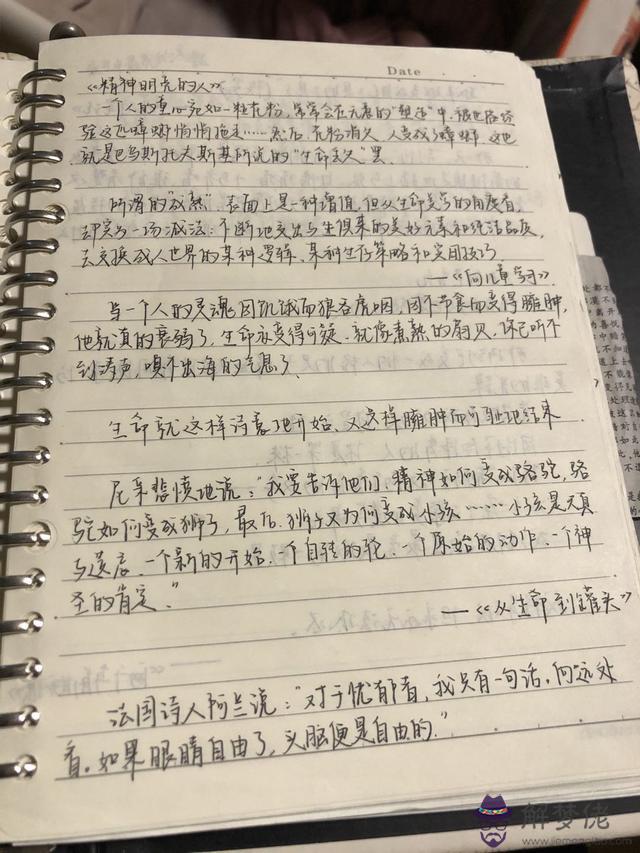 Date
《精神明亮的人》
一个人的童心宛如一粒花粉，常常会在无意的"塑造"中，被世俗经
验这匹蟑螂悄悄拖走……然后，花粉消失，人变成了蟑螂。这也
就是巴乌斯托夫斯基所说的"生命丢失"罢。
所谓的"成熟"，表面上是一种增值，但从生命美学的角度看，
却实为一场减法：不断地交出与生俱来的美好元素和纯洁品质，
去交换成人世界的某种逻辑、某种生存策略和实用技巧。
——《向儿童学习》
当一个人的灵魂因饥饿而狼吞虎咽，因不节食而变得臃肿，
他就真的衰弱了，生命亦变得可疑。就像煮熟的扇贝，你已听不
到涛声，嗅不出海的气息了。
生命就这样诗意地开始，又这样臃肿而可耻地结束
尼采悲愤地说："我要告诉他们，精神如何变成骆驼，骆
驼如何变成狮子，最后，狮子又为何变成小孩……小孩是天真
与遗忘，一个新的开始，一个自转的轮，一个原始的动作，一个神
圣的肯定。"
——《从生命到罐头》
法国诗人阿兰说："对于忧郁者，我只有一句话，向远处
看。如果眼睛自由了，头脑便是自由的。"
解梦佬